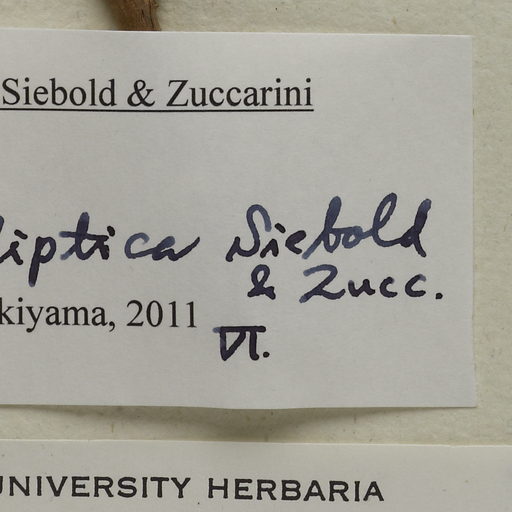 Siebold & Zuccarini
liptica Siebold
& Zucc.
kiyama, 2011
VI.
UNIVERSITY HERBARIA